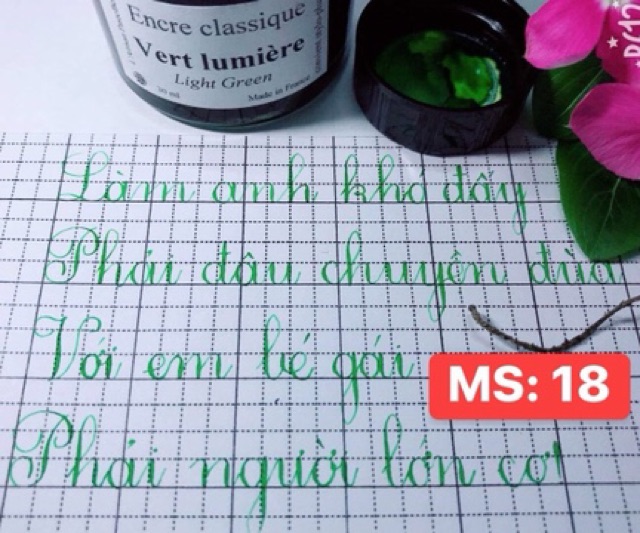 Encre classique
Vert lumière
Light Green
30 ml
Made in France
Làm anh khó đấy
Phải đâu chuyện đùa
Với em bé gái
MS: 18
Phải người lớn cơ!